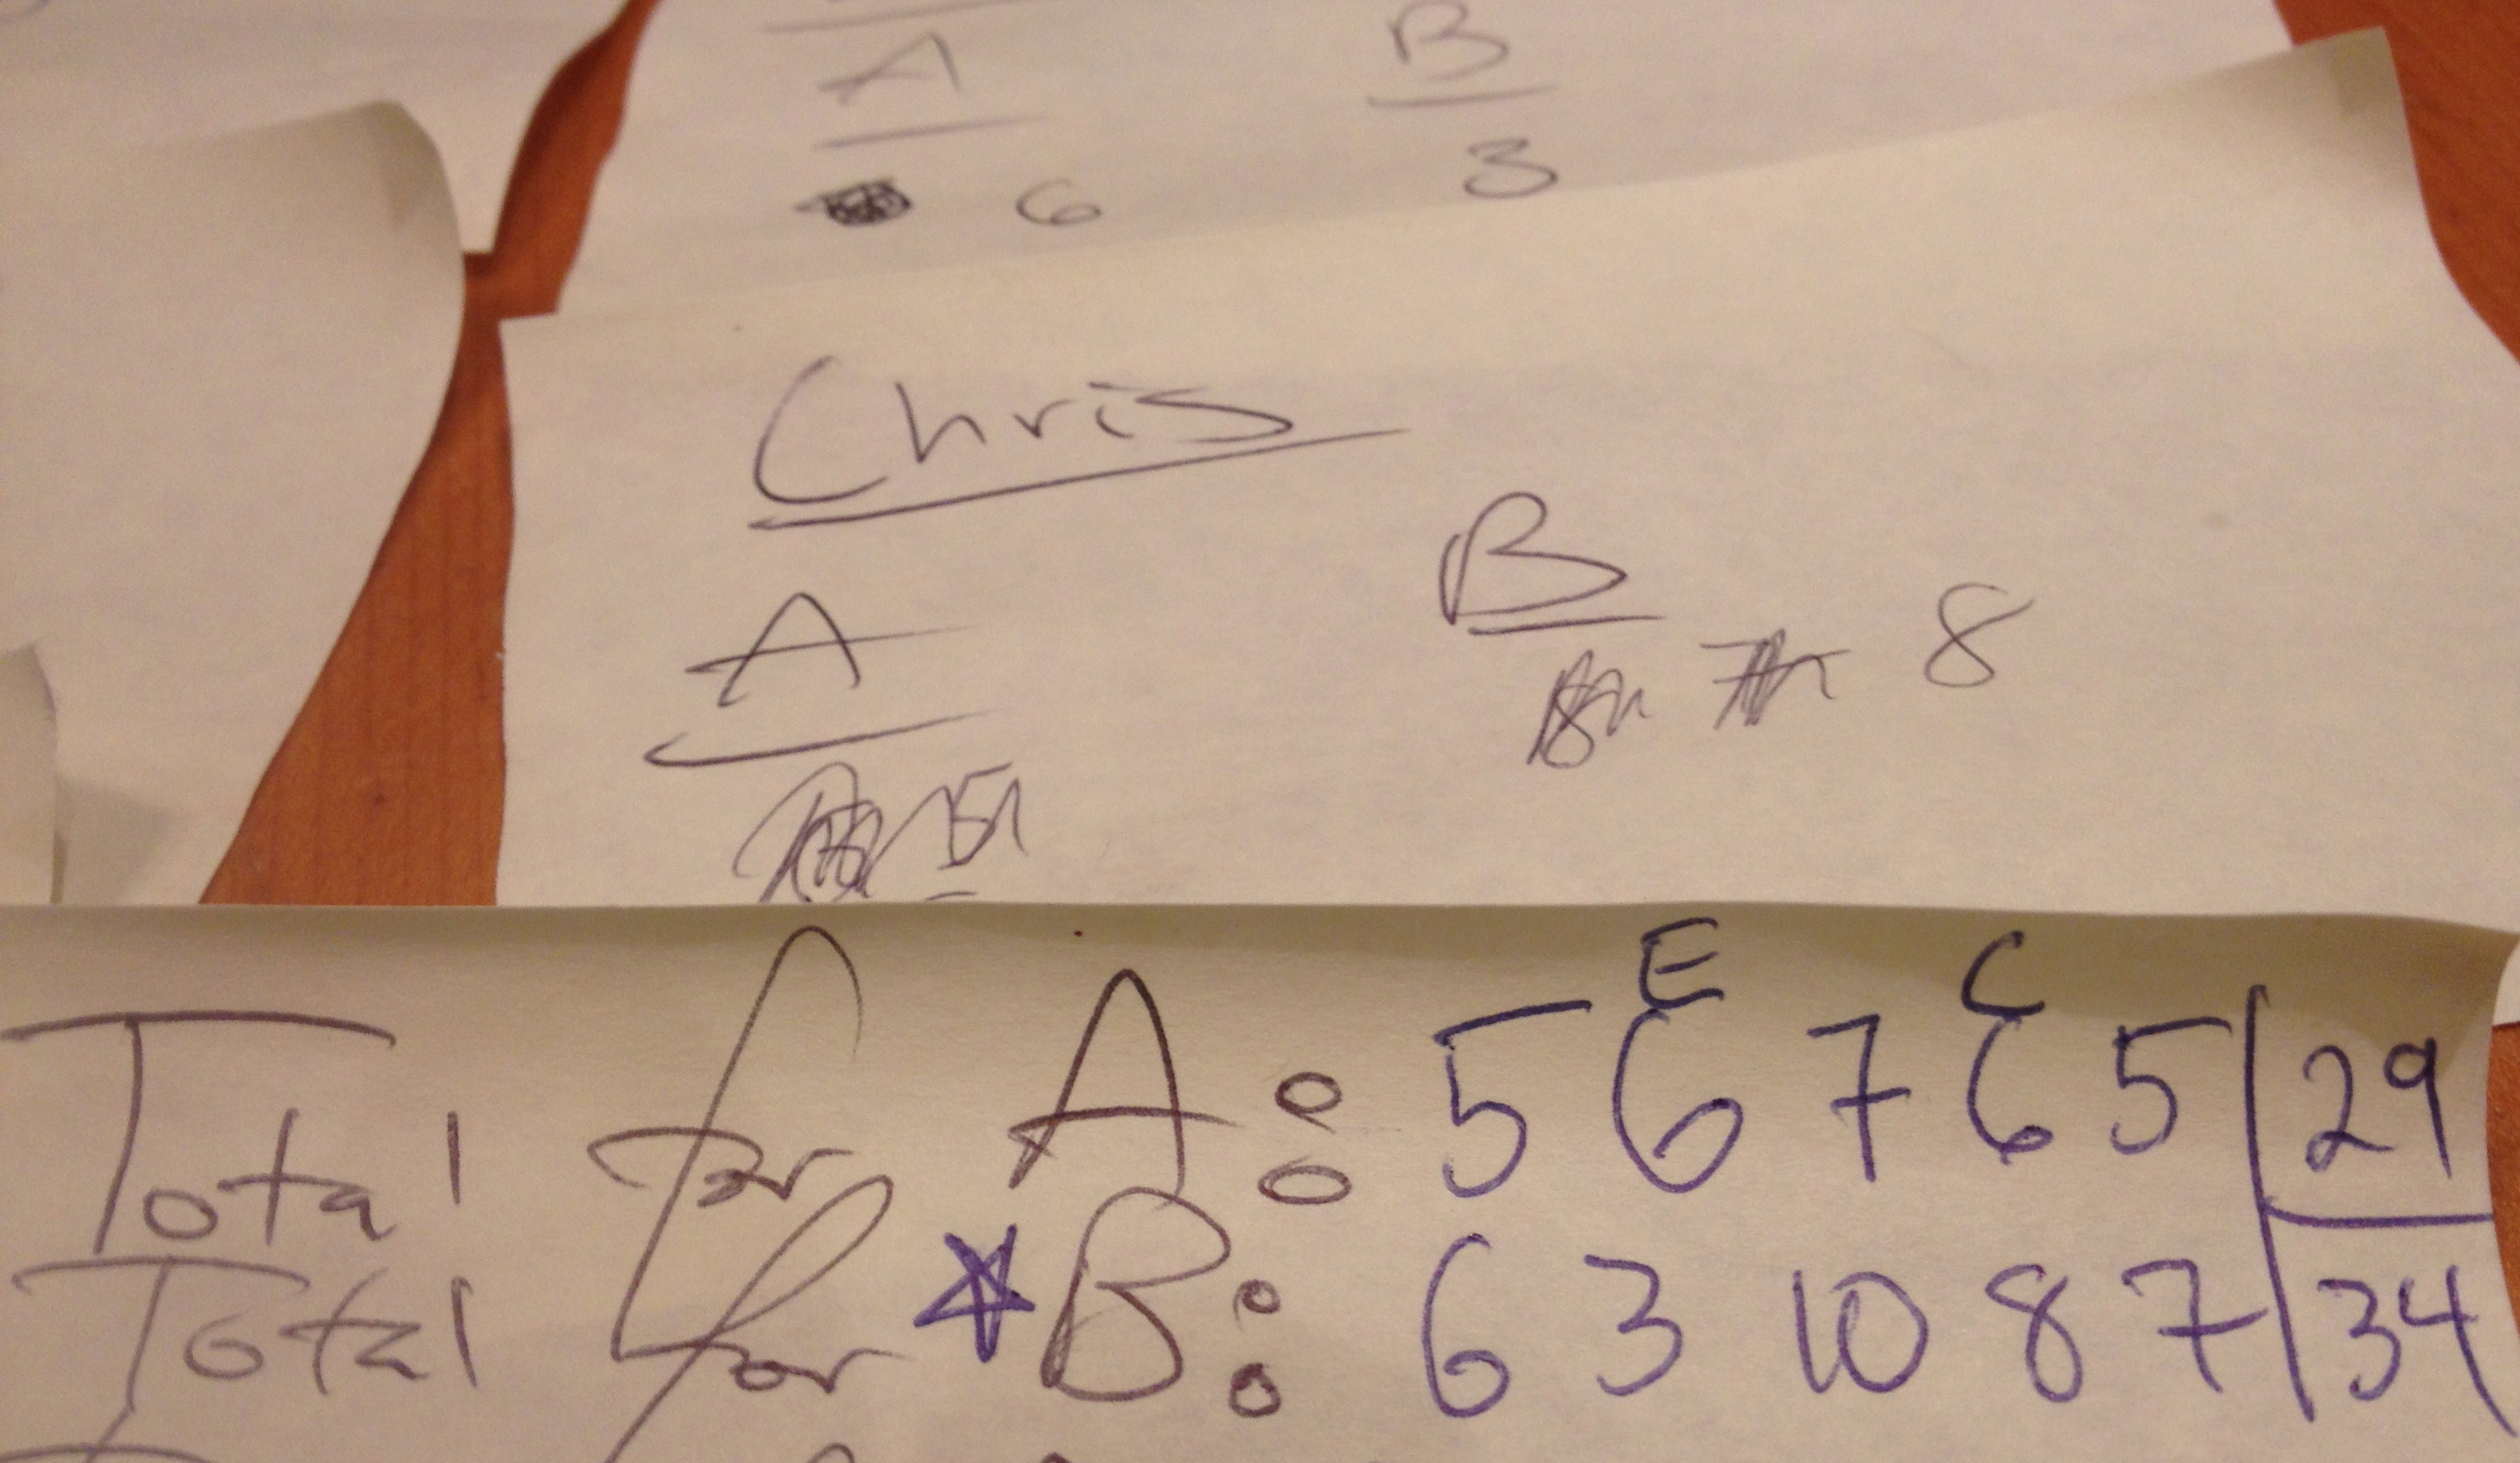 A B
6 3
Chris
A B
8
E C
Total for A: 5 6 7 6 5 29
Total for B: 6 3 10 8 7 34